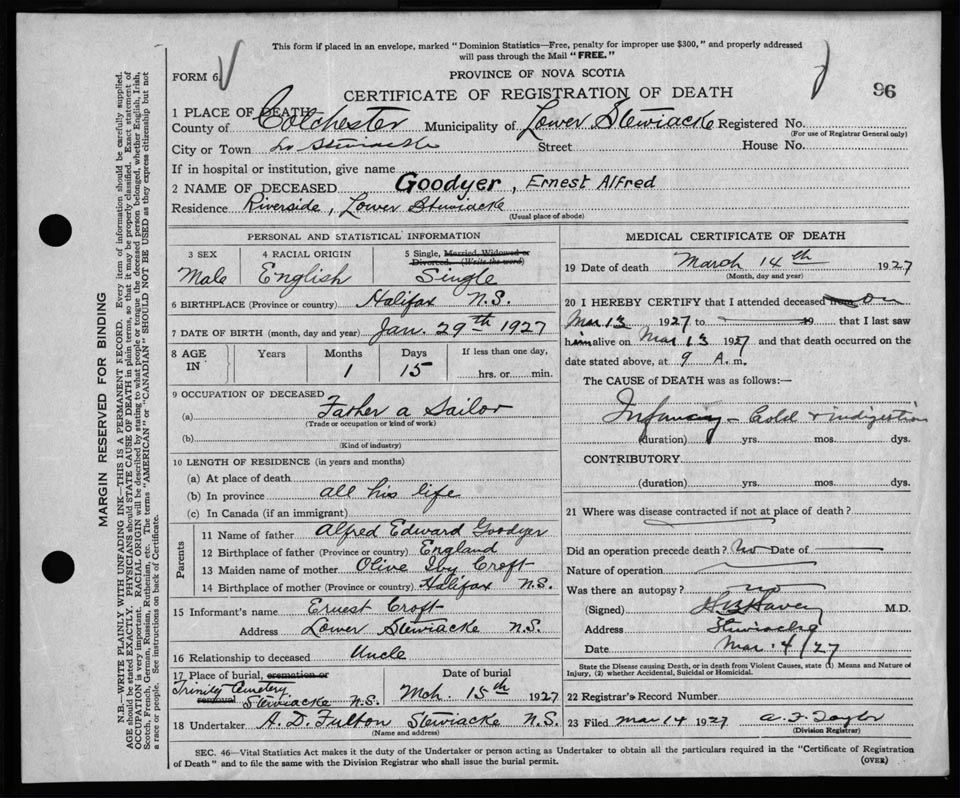 This form if placed in an envelope, marked "Dominion Statistics—Free, penalty for improper use $300," and properly addressed
will pass through the Mail "FREE."
FORM 6.
PROVINCE OF NOVA SCOTIA
CERTIFICATE OF REGISTRATION OF DEATH
96
1 PLACE OF DEATH
County of Colchester Municipality of Lower Stewiacke Registered No.
(For use of Registrar General only)
City or Town Lr Stewiacke Street House No.
If in hospital or institution, give name
2 NAME OF DECEASED Goodyer, Ernest Alfred
Residence Riverside, Lower Stewiacke
(Usual place of abode)
PERSONAL AND STATISTICAL INFORMATION
3 SEX
Male
4 RACIAL ORIGIN
English
5 Single, Married, Widowed or
Divorced. (Write the word)
Single
6 BIRTHPLACE (Province or country) Halifax N.S.
7 DATE OF BIRTH (month, day and year) Jan. 29th 1927
8 AGE IN
Years
Months
1
Days
15
If less than one day,
hrs. or min.
9 OCCUPATION OF DECEASED
(a) Father a Sailor
(Trade or occupation or kind of work)
(b)
(Kind of industry)
10 LENGTH OF RESIDENCE (in years and months)
(a) At place of death
(b) In province all his life
(c) In Canada (if an immigrant)
Parents
11 Name of father Alfred Edward Goodyer
12 Birthplace of father (Province or country) England
13 Maiden name of mother Olive Iby Croft
14 Birthplace of mother (Province or country) Halifax N.S.
15 Informant's name Ernest Croft
Address Lower Stewiacke N.S.
16 Relationship to deceased Uncle
17 Place of burial, cremation or
removal
Trinity Cemetery
Stewiacke N.S.
Date of burial
Mch. 15th 1927
18 Undertaker A. D. Fulton Stewiacke N.S.
(Name and address)
MEDICAL CERTIFICATE OF DEATH
19 Date of death March 14th 1927
(Month, day and year)
20 I HEREBY CERTIFY that I attended deceased from on
Mar 13 1927 to 19 that I last saw
him alive on Mar 13 1927 and that death occurred on the
date stated above, at 9 A. m.
The CAUSE OF DEATH was as follows:—
Infancy - Cold & indigestion
(duration) yrs. mos. dys.
CONTRIBUTORY
(duration) yrs. mos. dys.
21 Where was disease contracted if not at place of death?
Did an operation precede death? No Date of
Nature of operation
Was there an autopsy? no
(Signed) M.D.
Address Stewiacke
Date Mar. 4/27
State the Disease causing Death, or in death from Violent Causes, state (1) Means and Nature of
Injury, (2) whether Accidental, Suicidal or Homicidal.
22 Registrar's Record Number
23 Filed Mar 14 1927 A. F. Taylor
(Division Registrar)
SEC. 46—Vital Statistics Act makes it the duty of the Undertaker or person acting as Undertaker to obtain all the particulars required in the "Certificate of Registration
of Death" and to file the same with the Division Registrar who shall issue the burial permit.
(OVER)
MARGIN RESERVED FOR BINDING
N.B.—WRITE PLAINLY WITH UNFADING INK—THIS IS A PERMANENT RECORD. Every item of information should be carefully supplied.
AGE should be stated EXACTLY. PHYSICIANS should STATE CAUSE OF DEATH in plain terms, so that it may be properly classified. Exact statement of
OCCUPATION is very important. RACIAL ORIGIN will be described by stating to what people or tongue the deceased person belonged, whether English, Irish,
Scotch, French, German, Russian, Ruthenian, etc. The terms "AMERICAN" or "CANADIAN" SHOULD NOT BE USED as they express citizenship but not
a race or people. See instructions on back of Certificate.